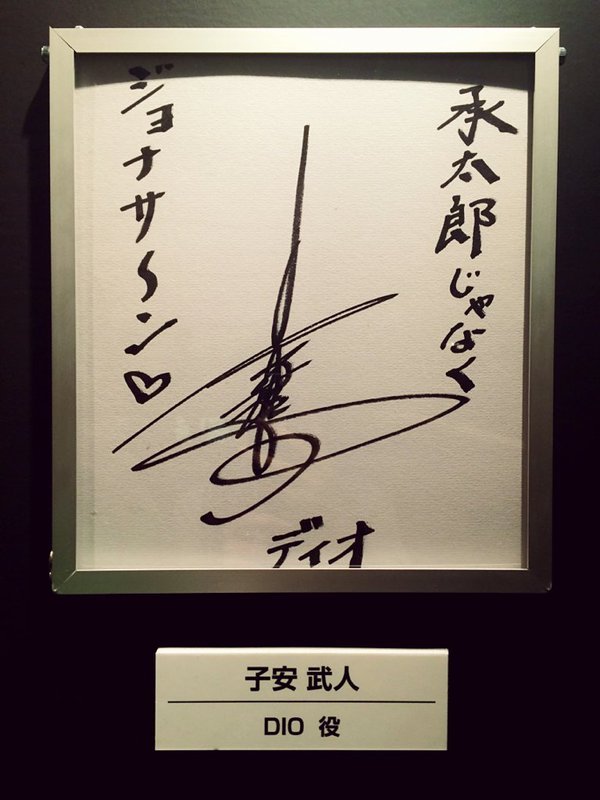 承太郎じゃなく
ジョナサ〜ン♡
ディオ
子安 武人
DIO 役